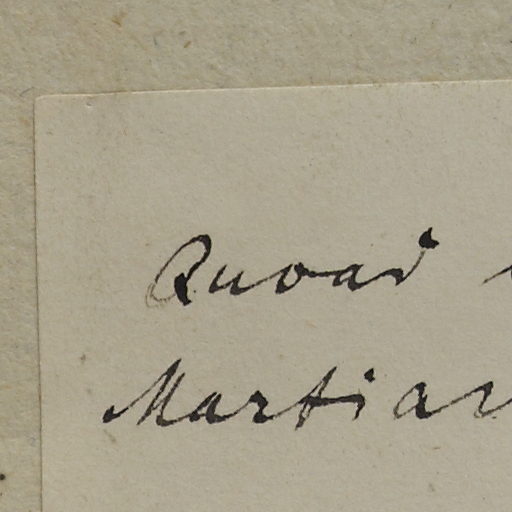 Quoad
Martian